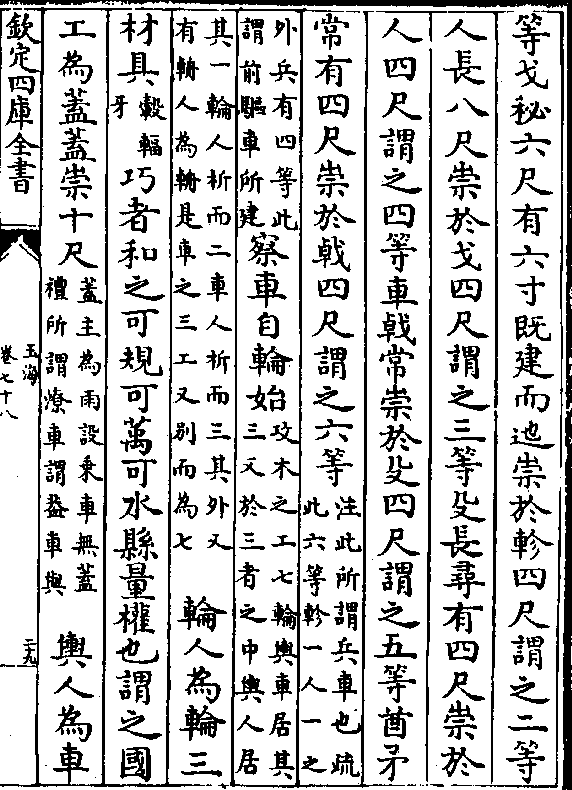 等戈秘六尺有六寸既建而迆崇於軫四尺謂之二等
人長八尺崇於戈四尺謂之三等殳長尋有四尺崇於
人四尺謂之四等車戟常崇於殳四尺謂之五等酋矛
常有四尺崇於戟四尺謂之六等
注此所謂兵車也疏
此六等軫一人一之
外兵有四等此
謂前驅車所建
察車自輪始
攻木之工七輪輿車居其
三又於三者之中輿人居
其一輪人析而二車人析而三其外又
有輈人為輈是車之三工又别而為七
輪人為輪三
材具
轂輻
牙
巧者和之可規可萬可水縣量權也謂之國
工為蓋蓋崇十尺
蓋主為雨設乗車無蓋
禮所謂潦車謂葢車與
輿人為車
欽定四庫全書
玉海
卷七十八
二九